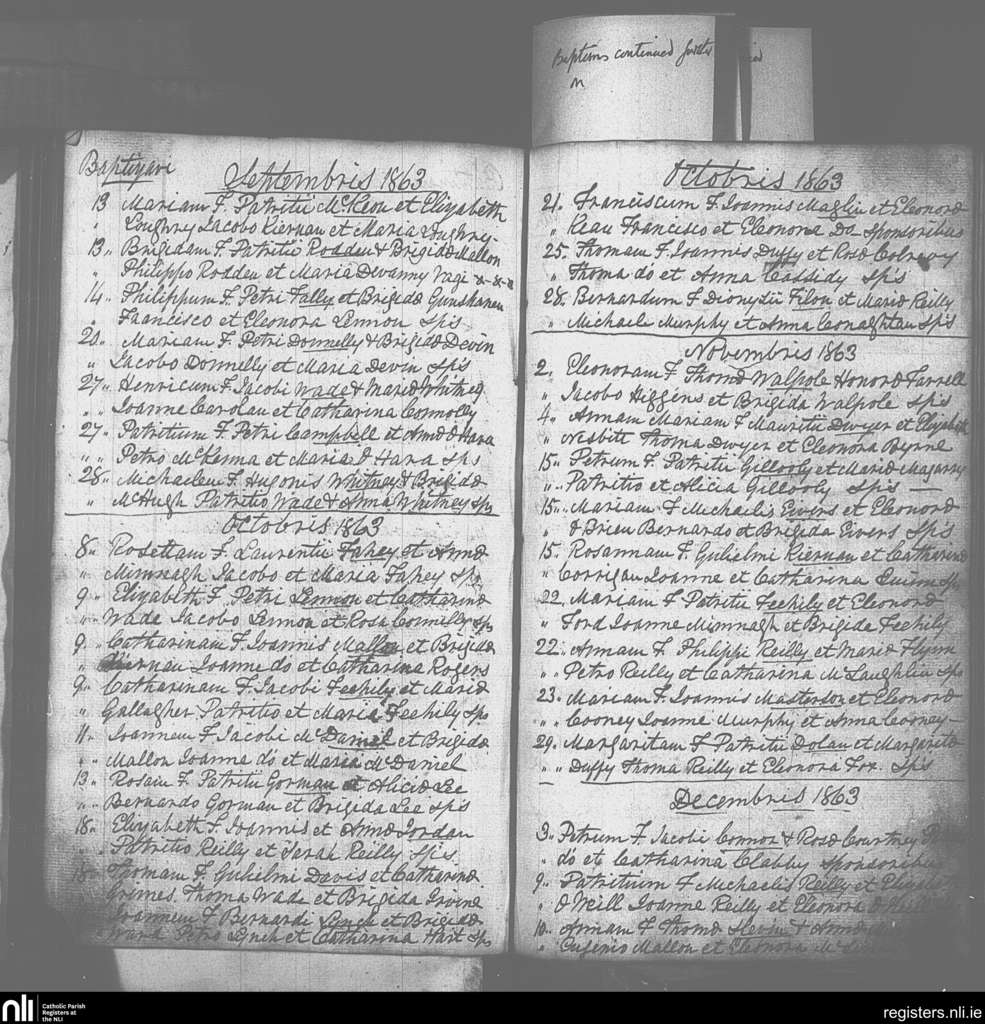 Baptisms continued further
on
Baptizavi
Septembris 1863
13 Mariam F. Patritii McKeon et Elizabeth
" Loughry Jacobo Kiernan et Maria
13 " Brigidam F. Patritii Rodden & Brigidæ Mallon
" Philippo Rodden et Maria Devanny Vagi
14 " Philippum F. Petri Fally et Brigidæ Gunshanan
" Francisco et Eleonora Lennon Sp's
20 " Mariam F. Petri Donnelly & Brigidæ Devin
" Jacobo Donnelly et Maria Devin Sp's
27 " Henricum F. Jacobi Wade & Mariæ Whitney
" " Joanne Carolan et Catharina Connolly
27 " Patritium F. Petri Campbell et Annæ O Hara
" " Petro McKenna et Maria O Hara Sps
28 " Michaelem F. Hugonis Whitney & Brigidæ
" McHugh Patritio Wade & Anna Whitney Sps
Octobris 1863
8 " Rosettam F. Laurentii Fahey et Annæ
" Mimnagh Jacobo et Maria Fahey Sps
9 " Elizabeth F. Petri Lennon et Catharinæ
" Wade Jacobo Lennon et Rosa Connilly Sps
9 " Catharinam F. Joannis Mallon et Brigidæ
" Kiernan Joanne do et Catharina Rogers
9 " Catharinam F. Jacobi Feehily et Mariæ
" Gallagher Patritio et Maria Feehily Sps
11 " Joannem F. Jacobi McDaniel et Brigidæ
" Mallon Joanne do et Maria McDaniel
13 " Rosam F. Patritii Gorman et Aliciæ Lee
" Bernardo Gorman et Brigida Lee Sp's
18 " Elizabeth F. Joannis et Annæ Jordan
" Patritio Reilly et Sarah Reilly Sp's
18 " Thomam F. Gulielmi Davis et Catharinæ
Grimes Thoma Wade et Brigida Irvine
Joannem F. Bernardi Lynch et Brigidæ
Ward Petro Lynch et Catharina Hart Sps
Octobris 1863
21. Franciscum F. Joannis Maglin et Eleonoræ
" Keau Francisco et Eleonora Do Sponsoribus
25. Thomam F. Joannis Duffy et Rosæ Colreavy
" Thoma do et Anna Cassidy Sp's
28. Bernardum F. Dionysii Filon et Mariæ Reilly
" Michaele Murphy et Anna Conaghtan Sp's
Novembris 1863
2. Eleonoram F. Thomæ Walpole Honoræ Farrell
" Jacobo Higgins et Brigida Walpole Sp's
4. Annam Mariam F. Mauritii Dwyer et Elizabeth
" Nesbitt Thoma Dwyer et Eleonora Byrne
15 " Petrum F. Patritii Gillooly et Mariæ Magarry
" Patritio et Alicia Gillooly Sp's —
15 " Mariam F. Michaelis Eivers et Eleonoræ
" O Brien Bernardo et Brigida Eivers Sp's
15. Rosannam F. Gulielmi Kiernan et Catharinæ
" Corrigan Joanne et Catharina Quinn Sp
22. Mariam F. Patritii Feehily et Eleonoræ
" Ford Joanne Mimnagh et Brigida Feehily
22 " Annam F. Philippi Reilly et Mariæ Flynn
" Petro Reilly et Catharina McLaughlin Sps
23. Mariam F. Joannis Masterson et Eleonoræ
" " Cooney Joanne Murphy et Anna Cooney —
29. Margaritam F. Patritii Dolan et Margaritæ
" " Duffy Thoma Reilly et Eleonora Fox. Sp's
Decembris 1863
3 " Petrum F. Jacobi Connor & Rosæ Courtney
" do et Catharina Clabby Sponsoribus
9. Patritium F. Michaelis Reilly et Elizabeth
" O Neill Joanne Reilly et Eleonora
10. Annam F. Thomæ Slevin & Annæ
" Eugenio Mallon et Eleonora
nli
Catholic Parish
Registers at
the NLI
registers.nli.ie